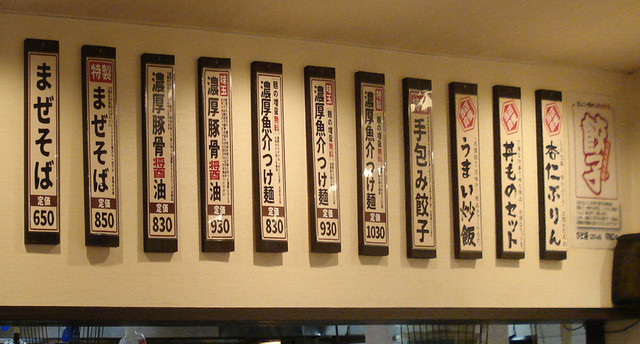 まぜそば
定価
650
特製
まぜそば
定価
850
濃厚豚骨醤油
定価
830
味玉
濃厚豚骨醤油
定価
930
麺の増量無料
濃厚魚介つけ麺
定価
830
味玉
麺の増量無料
濃厚魚介つけ麺
定価
930
麺の増量無料
濃厚魚介つけ麺
定価
1030
手包み餃子
うまい炒飯
丼ものセット
杏仁ぷりん
餃子